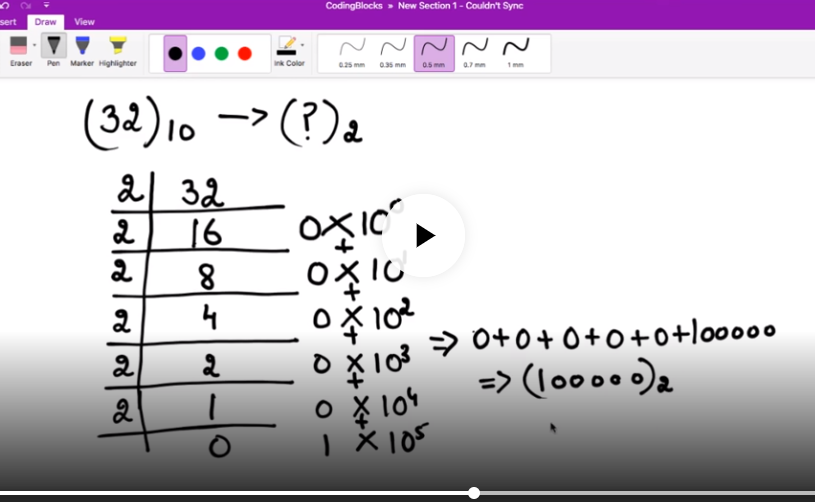 CodingBlocks » New Section 1 - Couldn't Sync
sert Draw View
Eraser Pen Marker Highlighter Ink Color 0.25 mm 0.35 mm 0.5 mm 0.7 mm 1 mm
(32)₁₀ → (?)₂
2 | 32
2 | 16 0 × 10⁰
+
2 | 8 0 × 10¹
+
2 | 4 0 × 10²
+
2 | 2 0 × 10³
+
2 | 1 0 × 10⁴
+
0 1 × 10⁵
⇒ 0+0+0+0+0+100000
⇒ (100000)₂